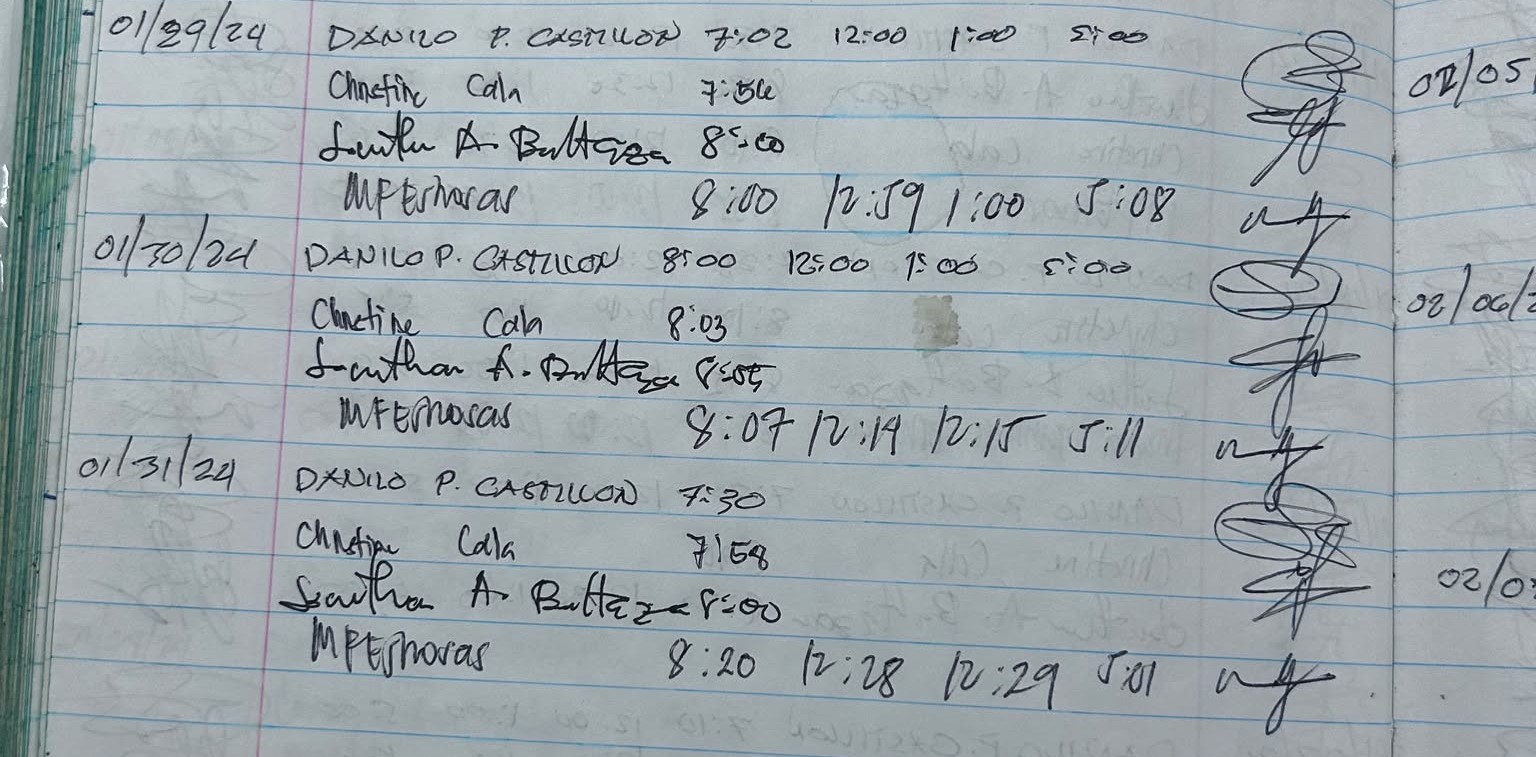 01/29/24 DANILO P. CASTILLON 7:02 12:00 1:00 5:00
Christine Cala 7:56
A. Baltazar 8:00
8:00 12:59 1:00 5:08
01/30/24 DANILO P. CASTILLON 8:00 12:00 1:00 5:00
Christine Cala 8:03
A. Baltazar 8:05
8:07 12:14 12:15 5:11
01/31/24 DANILO P. CASTILLON 7:30
Christine Cala 7:58
A. Baltazar 8:00
8:20 12:28 12:29 5:01
02/05
02/06/2
02/0